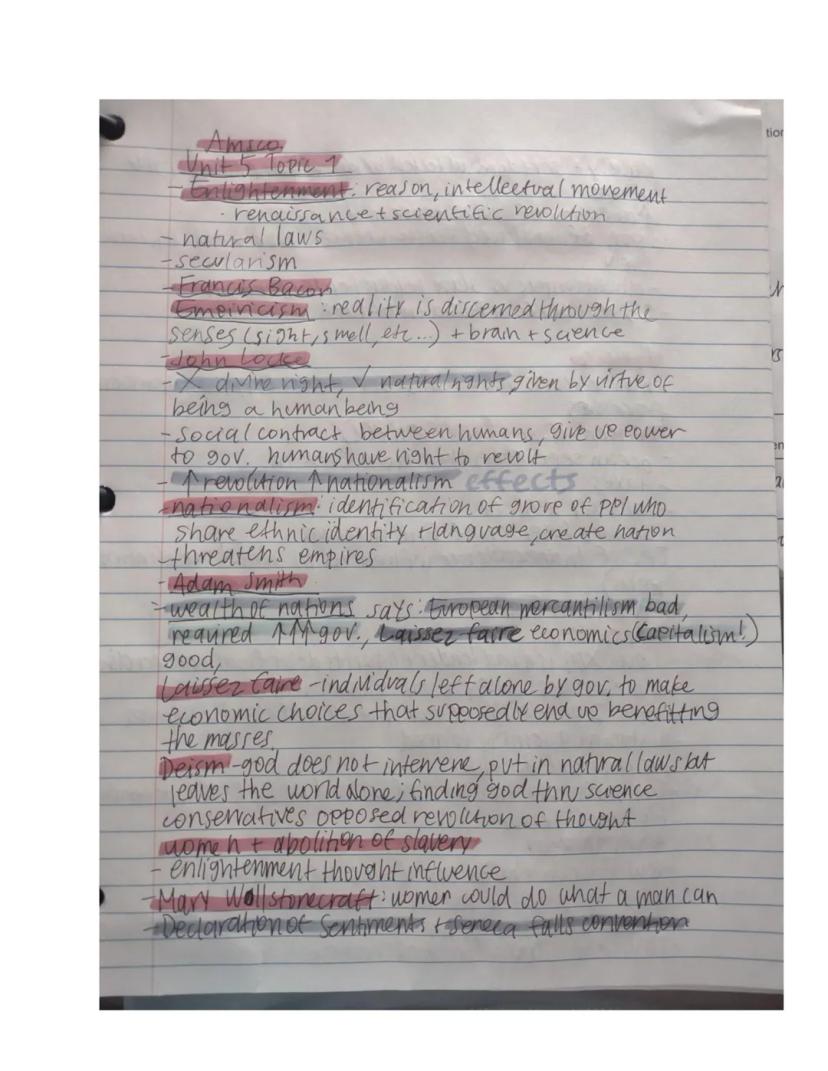 Amsco
Unit 5 Topic 1
- Enlightenment: reason, intellectual movement
· renaissance + scientific revolution
- natural laws
- secularism
- Francis Bacon
Empiricism: reality is discerned through the
senses (sight, smell, etc...) + brain + science
- John Locke
- X divine right, ✓ natural rights given by virtue of
being a human being
- social contract between humans, give up power
to gov. humans have right to revolt
- ↑ revolution ↑ nationalism effects
- nationalism: identification of group of ppl who
share ethnic identity + language, create nation
- threatens empires
- Adam Smith
- wealth of nations says: European mercantilism bad,
required ↑↑↑ gov., Laissez faire economics (Capitalism!)
good,
Laissez faire - individuals left alone by gov. to make
economic choices that supposedly end up benefitting
the masses
Deism - god does not intervene, put in natural laws but
leaves the world alone; finding god thru science
conservatives opposed revolution of thought
women + abolition of slavery
- enlightenment thought influence
- Mary Wollstonecraft: women could do what a man can
- Declaration of Sentiments + Seneca falls convention